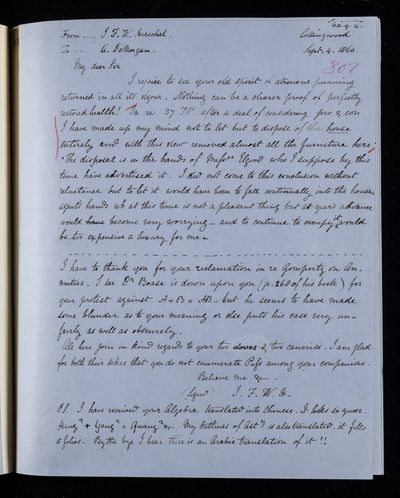 "60.9.4"
From .... J. F. W. Herschel. Collingwood
To .... A. DeMorgan. Sept. 4. 1860.
My dear Sir 307
I rejoice to see your old spirit of atrocious punning
returned in all its vigour. Nothing can be a clearer proof of perfectly
restored health! In re 37 after a deal of considering pro & con
I have made up my mind not to let but to dispose of the house
entirely and with this view removed almost all the furniture here.
The disposal is in the hands of Messrs Elgood who I suppose by this
time have advertised it. I did not come to this conclusion without
reluctance but to let it would have been to fall continually into the house
agents hands wh at this time is not a pleasant thing but as years advance
would have become very worrying – and to continue to occupy it would
be too expensive a luxury for me –
I have to thank you for your reclamation in re Gompertz on An-
nuities. I see Dr Boase is down upon you (p. 268 of his book) for
your protest against A + B = AB – but he seems to have made
some blunder as to your meaning or else puts his case very un-
fairly as well as obscurely.
All here join in kind regards to your two doves & two canaries. I am glad
for both their sakes that you do not enumerate Puss among your companions.
Believe me &c –
Signed J. F. W. H.
P.S. I have received your Algebra translated into Chinese. It looks so queer.
+ = My Outlines of Asty is also translated. it fills
folios. By the bye I hear there is an Arabic translation of it!!